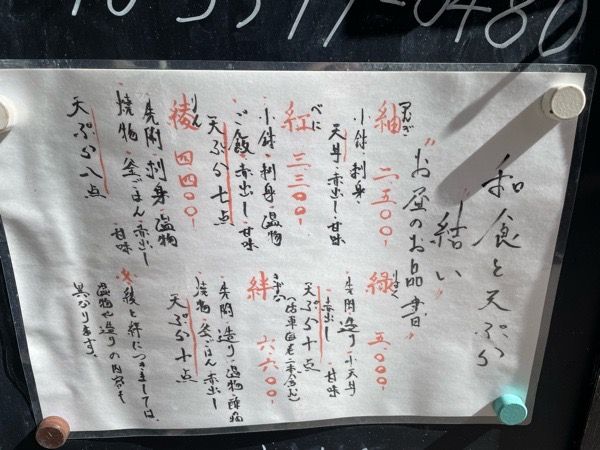 0480
和食と天ぷら
"結い"
"お昼のお品書"
つむぎ
紬 二五00-
・小鉢・刺身
・天丼・赤出し・甘味
べに
紅 三三00-
・小鉢・刺身・温物
・ご飯・赤出し・甘味
天ぷら七点
りん
綾 四四00-
・先附・刺身・温物
・焼物・釜ごはん・赤出し・甘味
天ぷら八点
緑 五000-
・先附・造り・小天丼
・赤出し・甘味
天ぷら十点
(活車海老二本含む)
きずな
絆 六六00-
・先附・造り・温物・酢物
・焼物・釜ごはん・赤出し
天ぷら十点
と絆につきましては、
温物や造りの内容も
異なります。